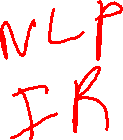 NLP
IR